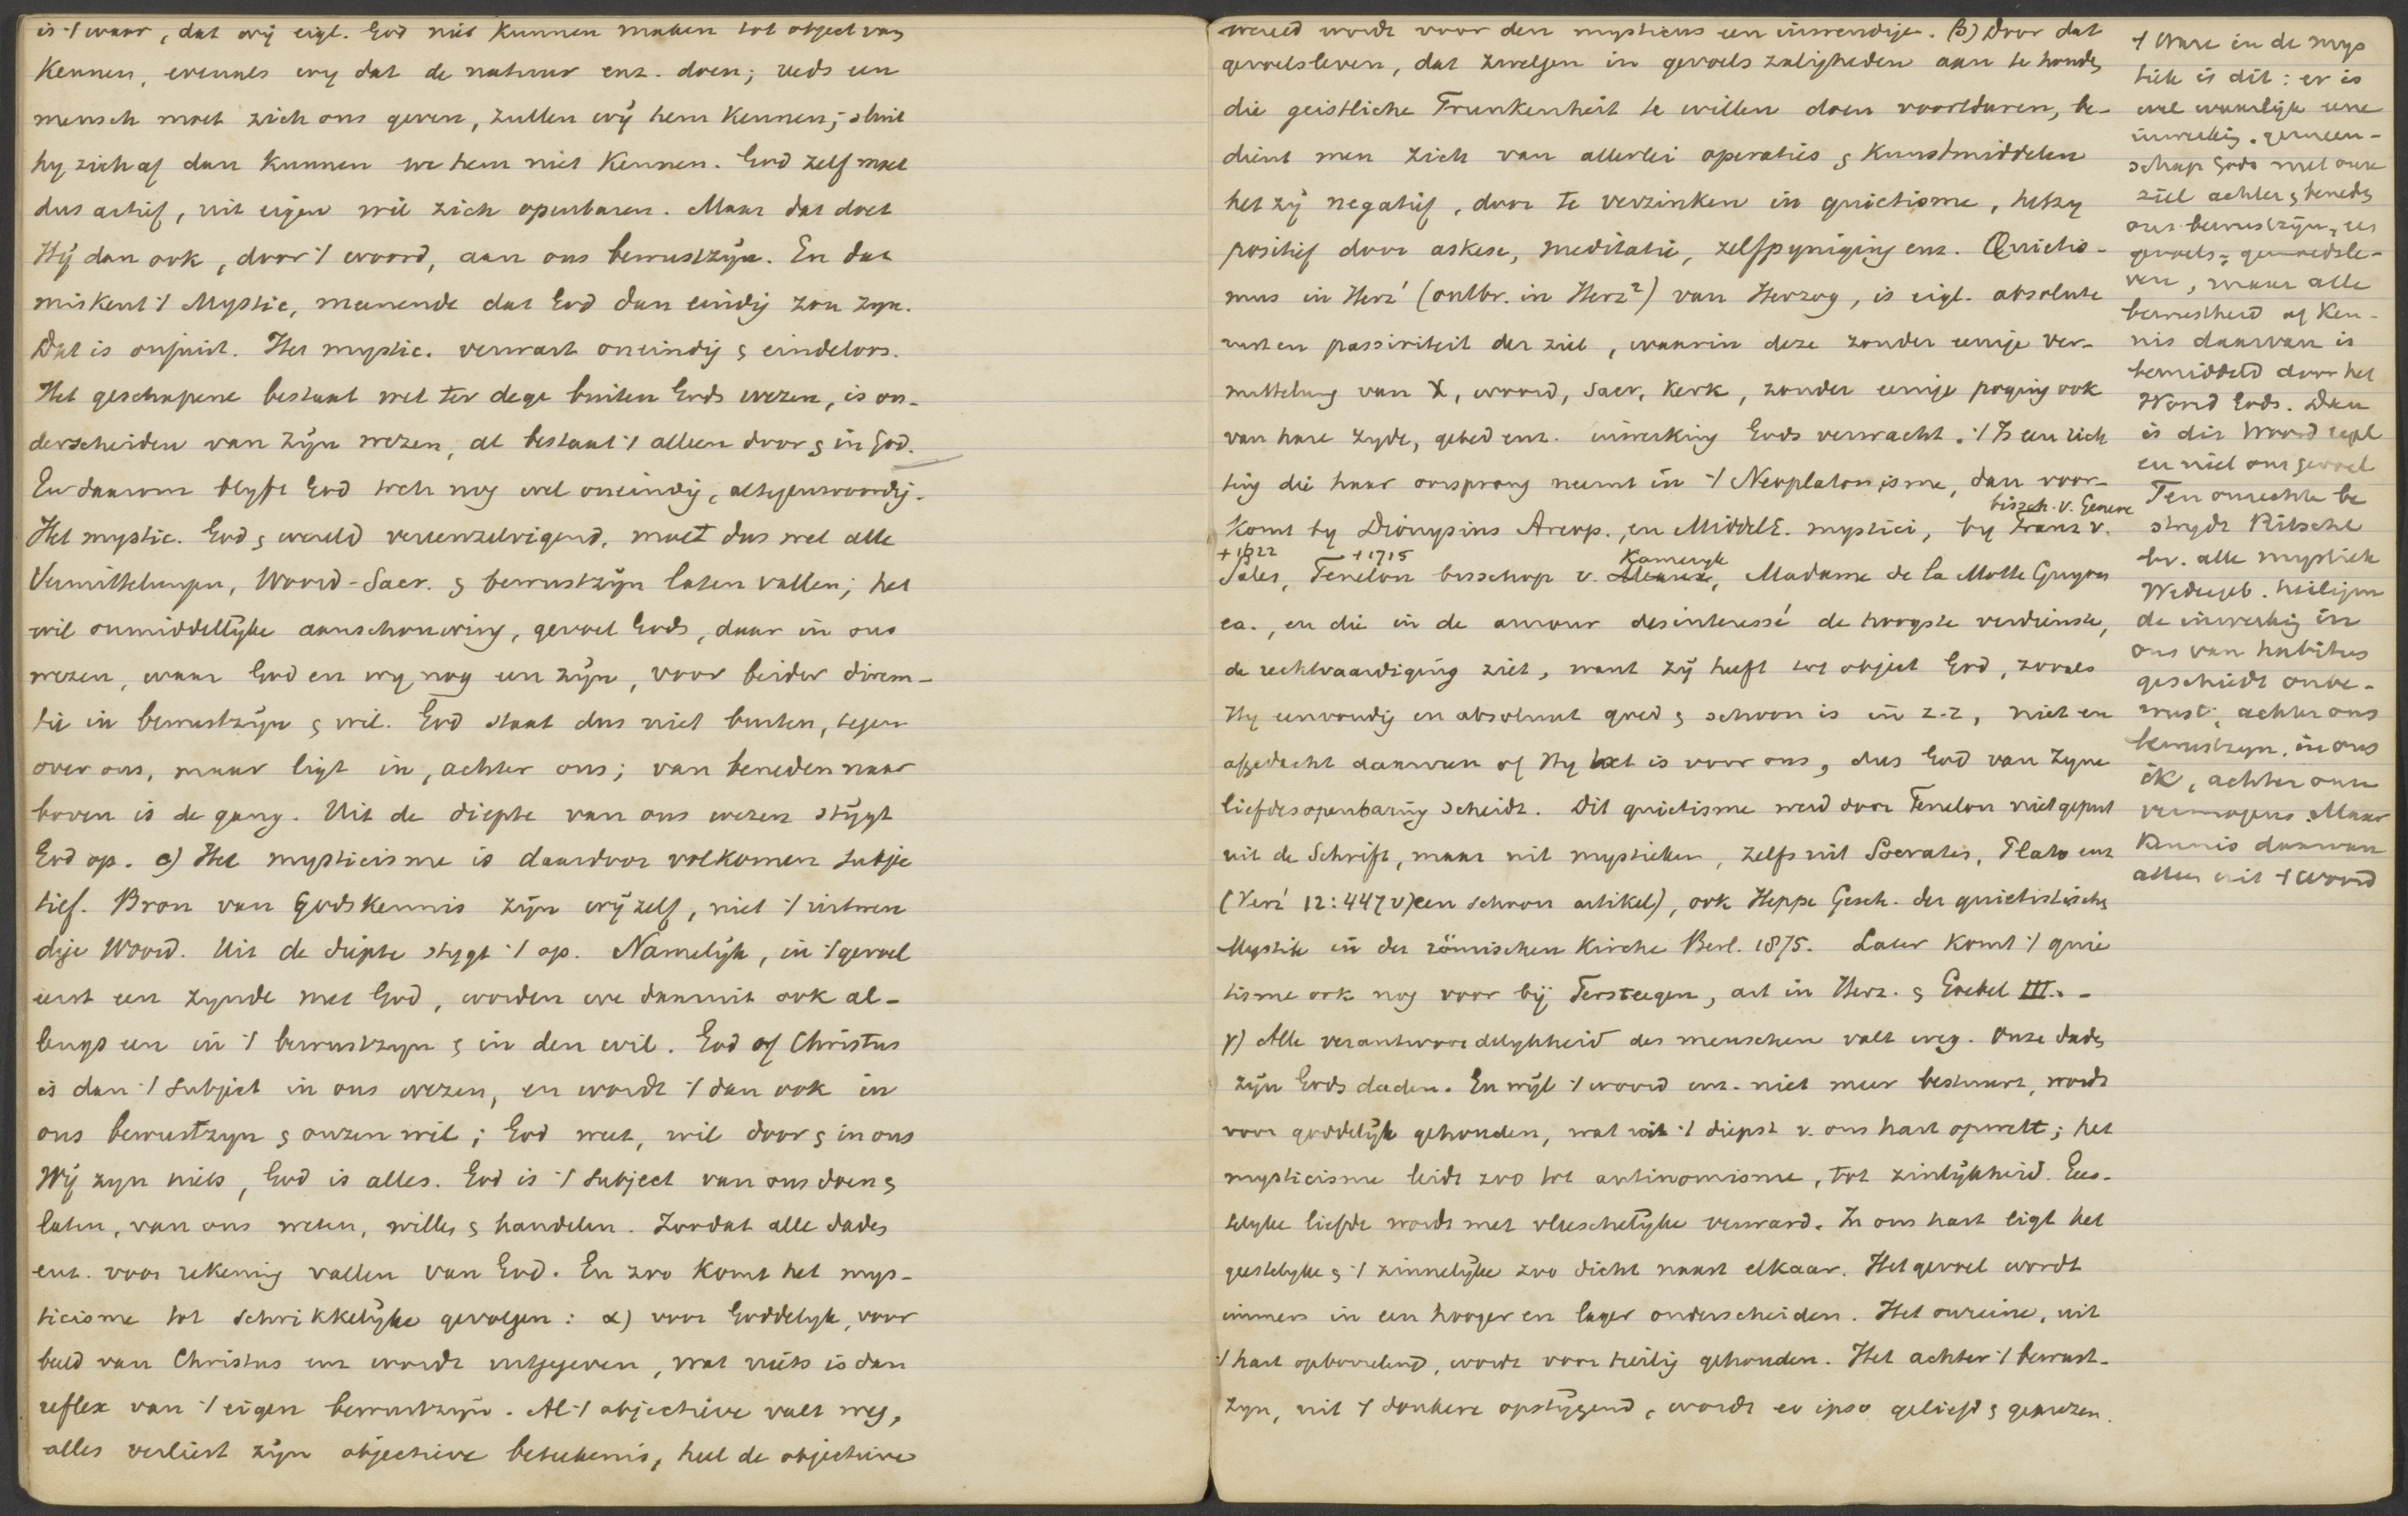 is 't waar, dat wij eigl. God niet kunnen maken tot object van
kennen, evenals wij dat de natuur enz. doen; reeds een
mensch moet zich ons geven, zullen wij hem kennen; sluit
hij zich af dan kunnen we hem niet kennen. God zelf moet
dus actief, uit eigen wil zich openbaren. Maar dat doet
Hij dan ook, door 't woord, aan ons bewustzijn. En dat
miskent 't Mystic, meenende dat God dan eindig zou zijn.
Dat is onjuist. Het mystic. verwart oneindig & eindeloos.
Het geschapene bestaat wel ter dege buiten Gods wezen, is on-
derscheiden van Zijn wezen, al bestaat 't alleen door & in God.
En daarom blijft God toch nog wel oneindig, alteg​enwoordig.
Het mystic. God & wereld vereenzelvigend, moet dus wel alle
Vermittelungen, Woord-Sacr. & bewustzijn laten vallen; het
wil onmiddellijke aanschouwing, gevoel Gods, daar in ons
wezen, waar God en wij nog een zijn, voor beider direm-
tie in bewustzijn & wil. God staat dus niet buiten, tegen
over ons, maar ligt in, achter ons; van beneden naar
boven is de gang. Uit de diepte van ons wezen stijgt
God op. c) Het mysticisme is daardoor volkomen subje
tief. Bron van Godskennis zijn wij zelf, niet 't uitwen
dige Woord. Uit de diepte stijgt 't op. Namelijk, in 't gevoel
eerst een zijnde met God, worden we daaruit ook al-
lengs een in 't bewustzijn & in den wil. God of Christus
is dan 't subject in ons wezen, en wordt 't dan ook in
ons bewustzijn & onzen wil; God weet, wil door & in ons
Wij zijn niets, God is alles. God is 't subject van ons doen &
laten, van ons weten, willen & handelen. Zoodat alle daden
enz. voor rekening vallen van God. En zoo komt het mys-
ticisme tot schrikkelijke gevolgen: α) voor Goddelijk, voor
beeld van Christus enz wordt uitgegeven, wat niets is dan
reflex van 't eigen bewustzijn. Al 't objectieve valt weg,
alles verliest zijn objectieve beteekenis, heel de objectieve
wereld wordt voor den mysticus een inwendige. β) Door dat
gevoelsleven, dat zwelgen in gevoels zaligheden aan te houden
die geistliche Trunkenheit te willen doen voortduren, be-
dient men zich van allerlei operaties & kunstmiddelen
het zij negatief, door te verzinken in quietisme, hetzij
positief door askese, meditatie, zelfpijniging enz. Quietis-
mus in Herz¹ (ontbr. in Herz²) van Herzog, is eigl. absolute
rust en passiviteit der ziel, waarin deze zonder eenige ver-
mittelung van X, woord, Sacr, Kerk, zonder eenige poging ook
van hare zijde, gebed enz. inwerking Gods verwacht. 't Is een rich
ting die haar oorsprong neemt in 't Neoplatonisme, dan voor-
bissch. v. Geneve
komt bij Dionysius Areop., en Middel E. mystici, by Franz v.
+ 1622 + 1715 Kamerijk
Sales, Fenelon bisschop v. , Madame de la Motte Guyon
ea., en die in de amour desinteressé de hoogste verdienste,
de rechtvaardiging ziet, want zij heeft tot object God, zooals
Hij eenvoudig en absoluut goed & schoon is in z.z, niet en
afgedacht daarvan of Hij het is voor ons, dus God van Zijne
liefdesopenbaring scheidt. Dit quietisme werd door Fenelon niet geput
uit de Schrift, maar uit mystieken, zelfs uit Socrates, Plato enz
(Herz¹ 12: 447 v) een schoon artikel), ook Heppe Gesch. der quietistischen
Mystik in der römischen Kirche Berl. 1875. Later komt 't quie
tisme ook nog voor bij Tersteegen, art in Herz. & Goebel III. -
γ) Alle verantwoordelijkheid des menschen valt weg. Onze daden
zijn Gods daden. En wijl 't woord enz. niet meer bestuurt, wordt
voor goddelijk gehouden, wat uit 't diepst v. ons hart opwelt; het
mysticisme leidt zoo tot antinomisme, tot zinlijkheid. Gees-
telijke liefde wordt met vleeschelijke verward. In ons hart ligt het
geestelijke & 't zinnelijke zoo dicht naast elkaar. Het gevoel wordt
immers in een hooger en lager onderscheiden. Het onreine, uit
't hart opborrelend, wordt voor heilig gehouden. Het achter 't bewust-
zijn, uit 't donkere opstijgend, wordt eo ipso geliefd & geprezen.
't Ware in de mys
tiek is dit: er is
wel waarlijk eene
inwerking. gemeen-
schap Gods met onze
ziel achter & beneden
ons bewustzijn, een
gevoels- gemoedsle-
ven, maar alle
bewustheid of Ken-
nis daarvan is
bemiddeld door het
Woord Gods. Dan
is dit Woord regel
en niet ons gevoel
Ten onrechte be
strijdt Ritschl
bv. alle mystiek
Wedergeb. heiligen
de inwerking in
ons van habitus
geschiedt onbe-
wust, achter ons
bewustzijn, in ons
ik, achter onze
vermogens. Maar
Kennis daarvan
alleen uit 't Woord